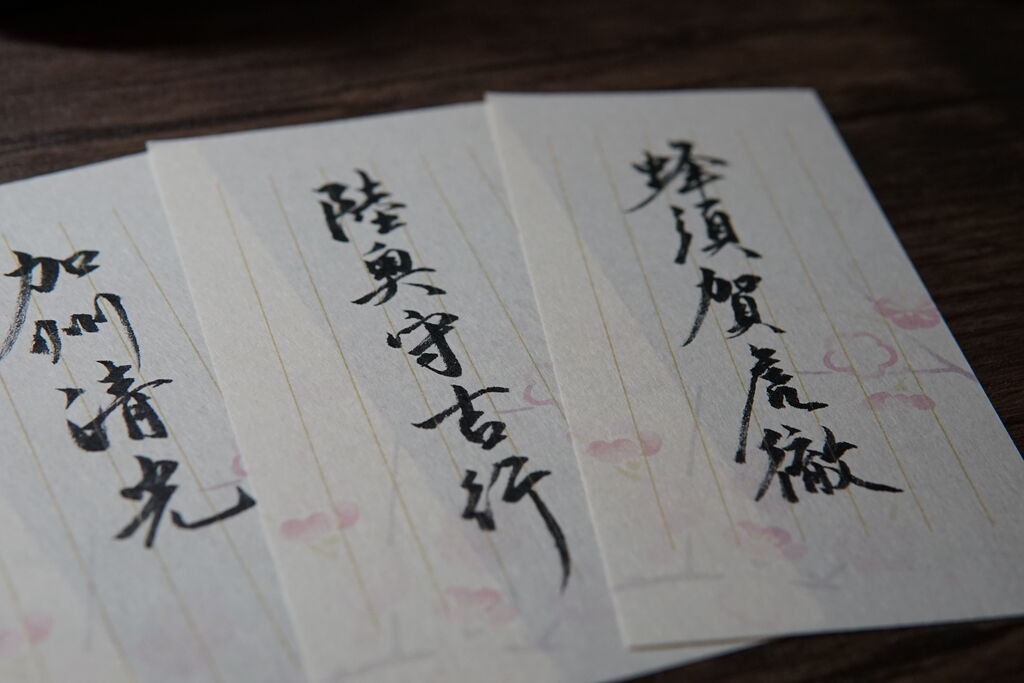 蜂須賀虎徹
陸奥守吉行
加州清光